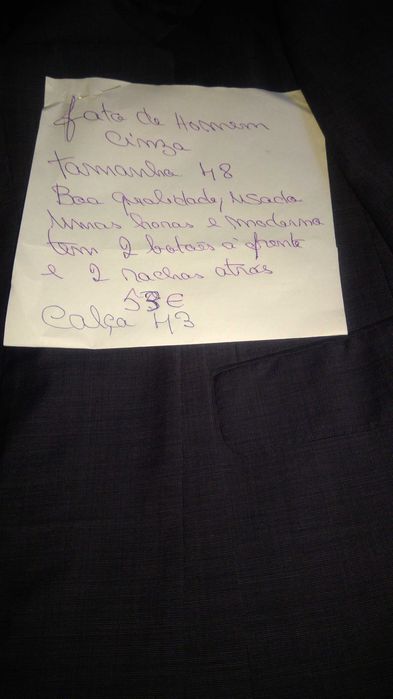 fato de Homem
Cinza
Tamanho 48
Boa qualidade, usado
umas horas e moderno
tem 2 botões a frente
e 2 rachas atras
53€
Calça 43